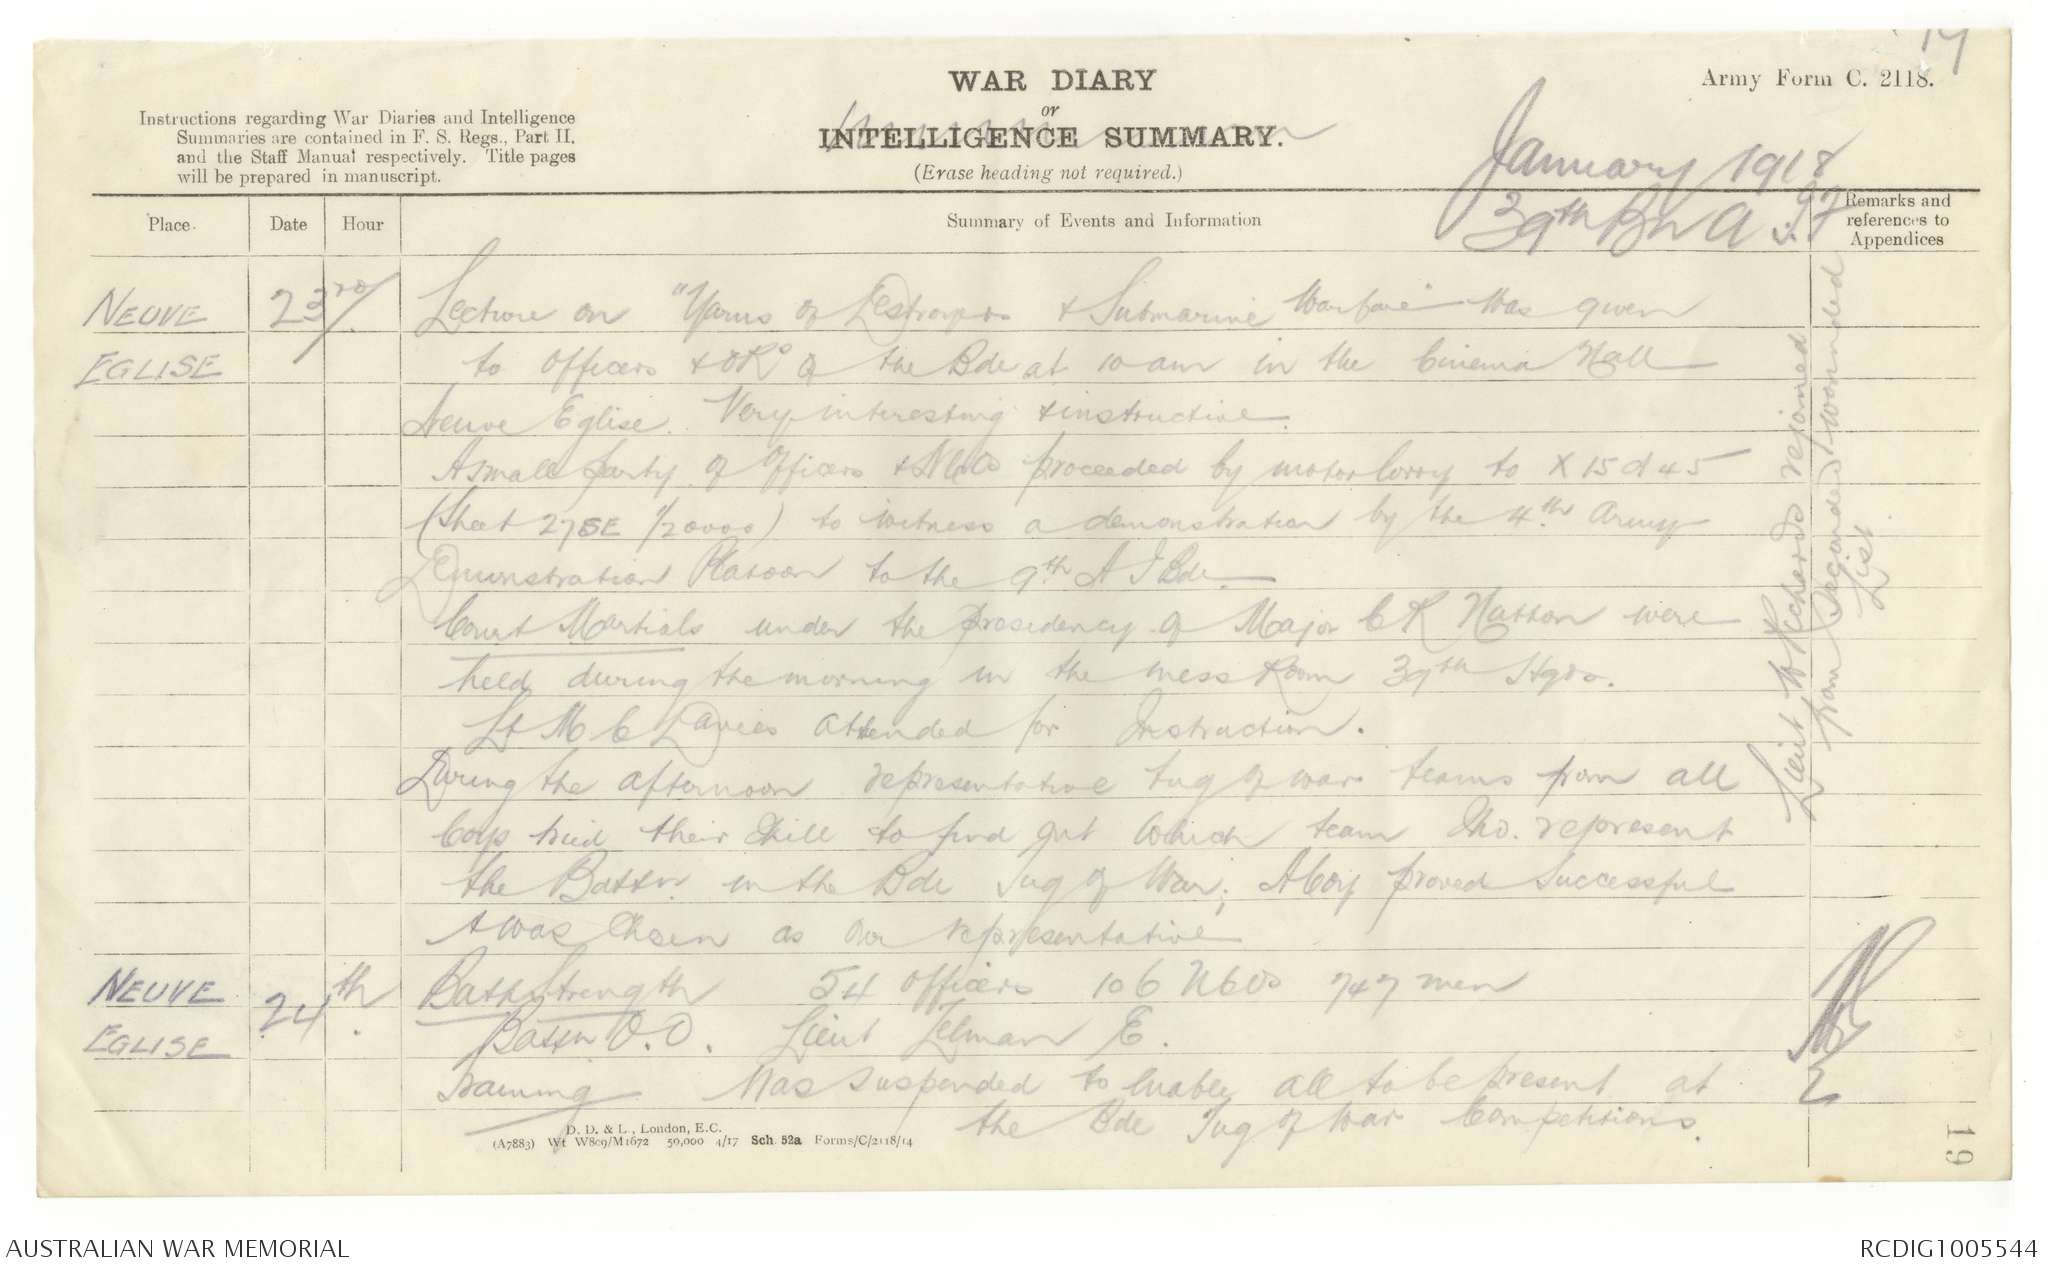 14
WAR DIARY
or
INTELLIGENCE SUMMARY.
(Erase heading not required.)
Army Form C. 2118.
Instructions regarding War Diaries and Intelligence
Summaries are contained in F. S. Regs., Part II.
and the Staff Manual respectively. Title pages
will be prepared in manuscript.
January 1918
39th Bn A.I.F
Place.
Date
Hour
Summary of Events and Information
Remarks and
references to
Appendices
NEUVE
EGLISE
23rd/
Lecture on "Yarns of Destroyers & Submarine Warfare" was given
to Officers & ORs of the Bde at 10 am in the Cinema Hall
Neuve Eglise. Very interesting & instructive.
A small party of Officers & NCOs proceeded by motor lorry to X 15 d 45
(Sheet 27SE 1/20000) to witness a demonstration by the 4th Army
Demonstration Platoon to the 9th A I Bde.
Court Martials under the presidency of Major C R Hutton were
held during the morning in the mess Room 39th Hqrs.
Lt M C Davies attended for Instruction.
During the afternoon representative tug of war teams from all
Coys tried their skill to find out which team shd. represent
the Battn in the Bde Tug of War; A Coy proved successful
& was chosen as our representative
Lieut W Richards rejoined
from Seconded wounded
List.
NEUVE
EGLISE
24th.
Battn Strength 54 Officers 106 NCOs 747 men
Battn O.O. Lieut Telman E.
Training Was suspended to enable all to be present at
the Bde Tug of War Competitions.
D. D. & L., London, E.C.
(A7883) Wt W809/M1672 50,000 4/17 Sch. 52a Forms/C/2118/14
19
AUSTRALIAN WAR MEMORIAL
RCDIG1005544